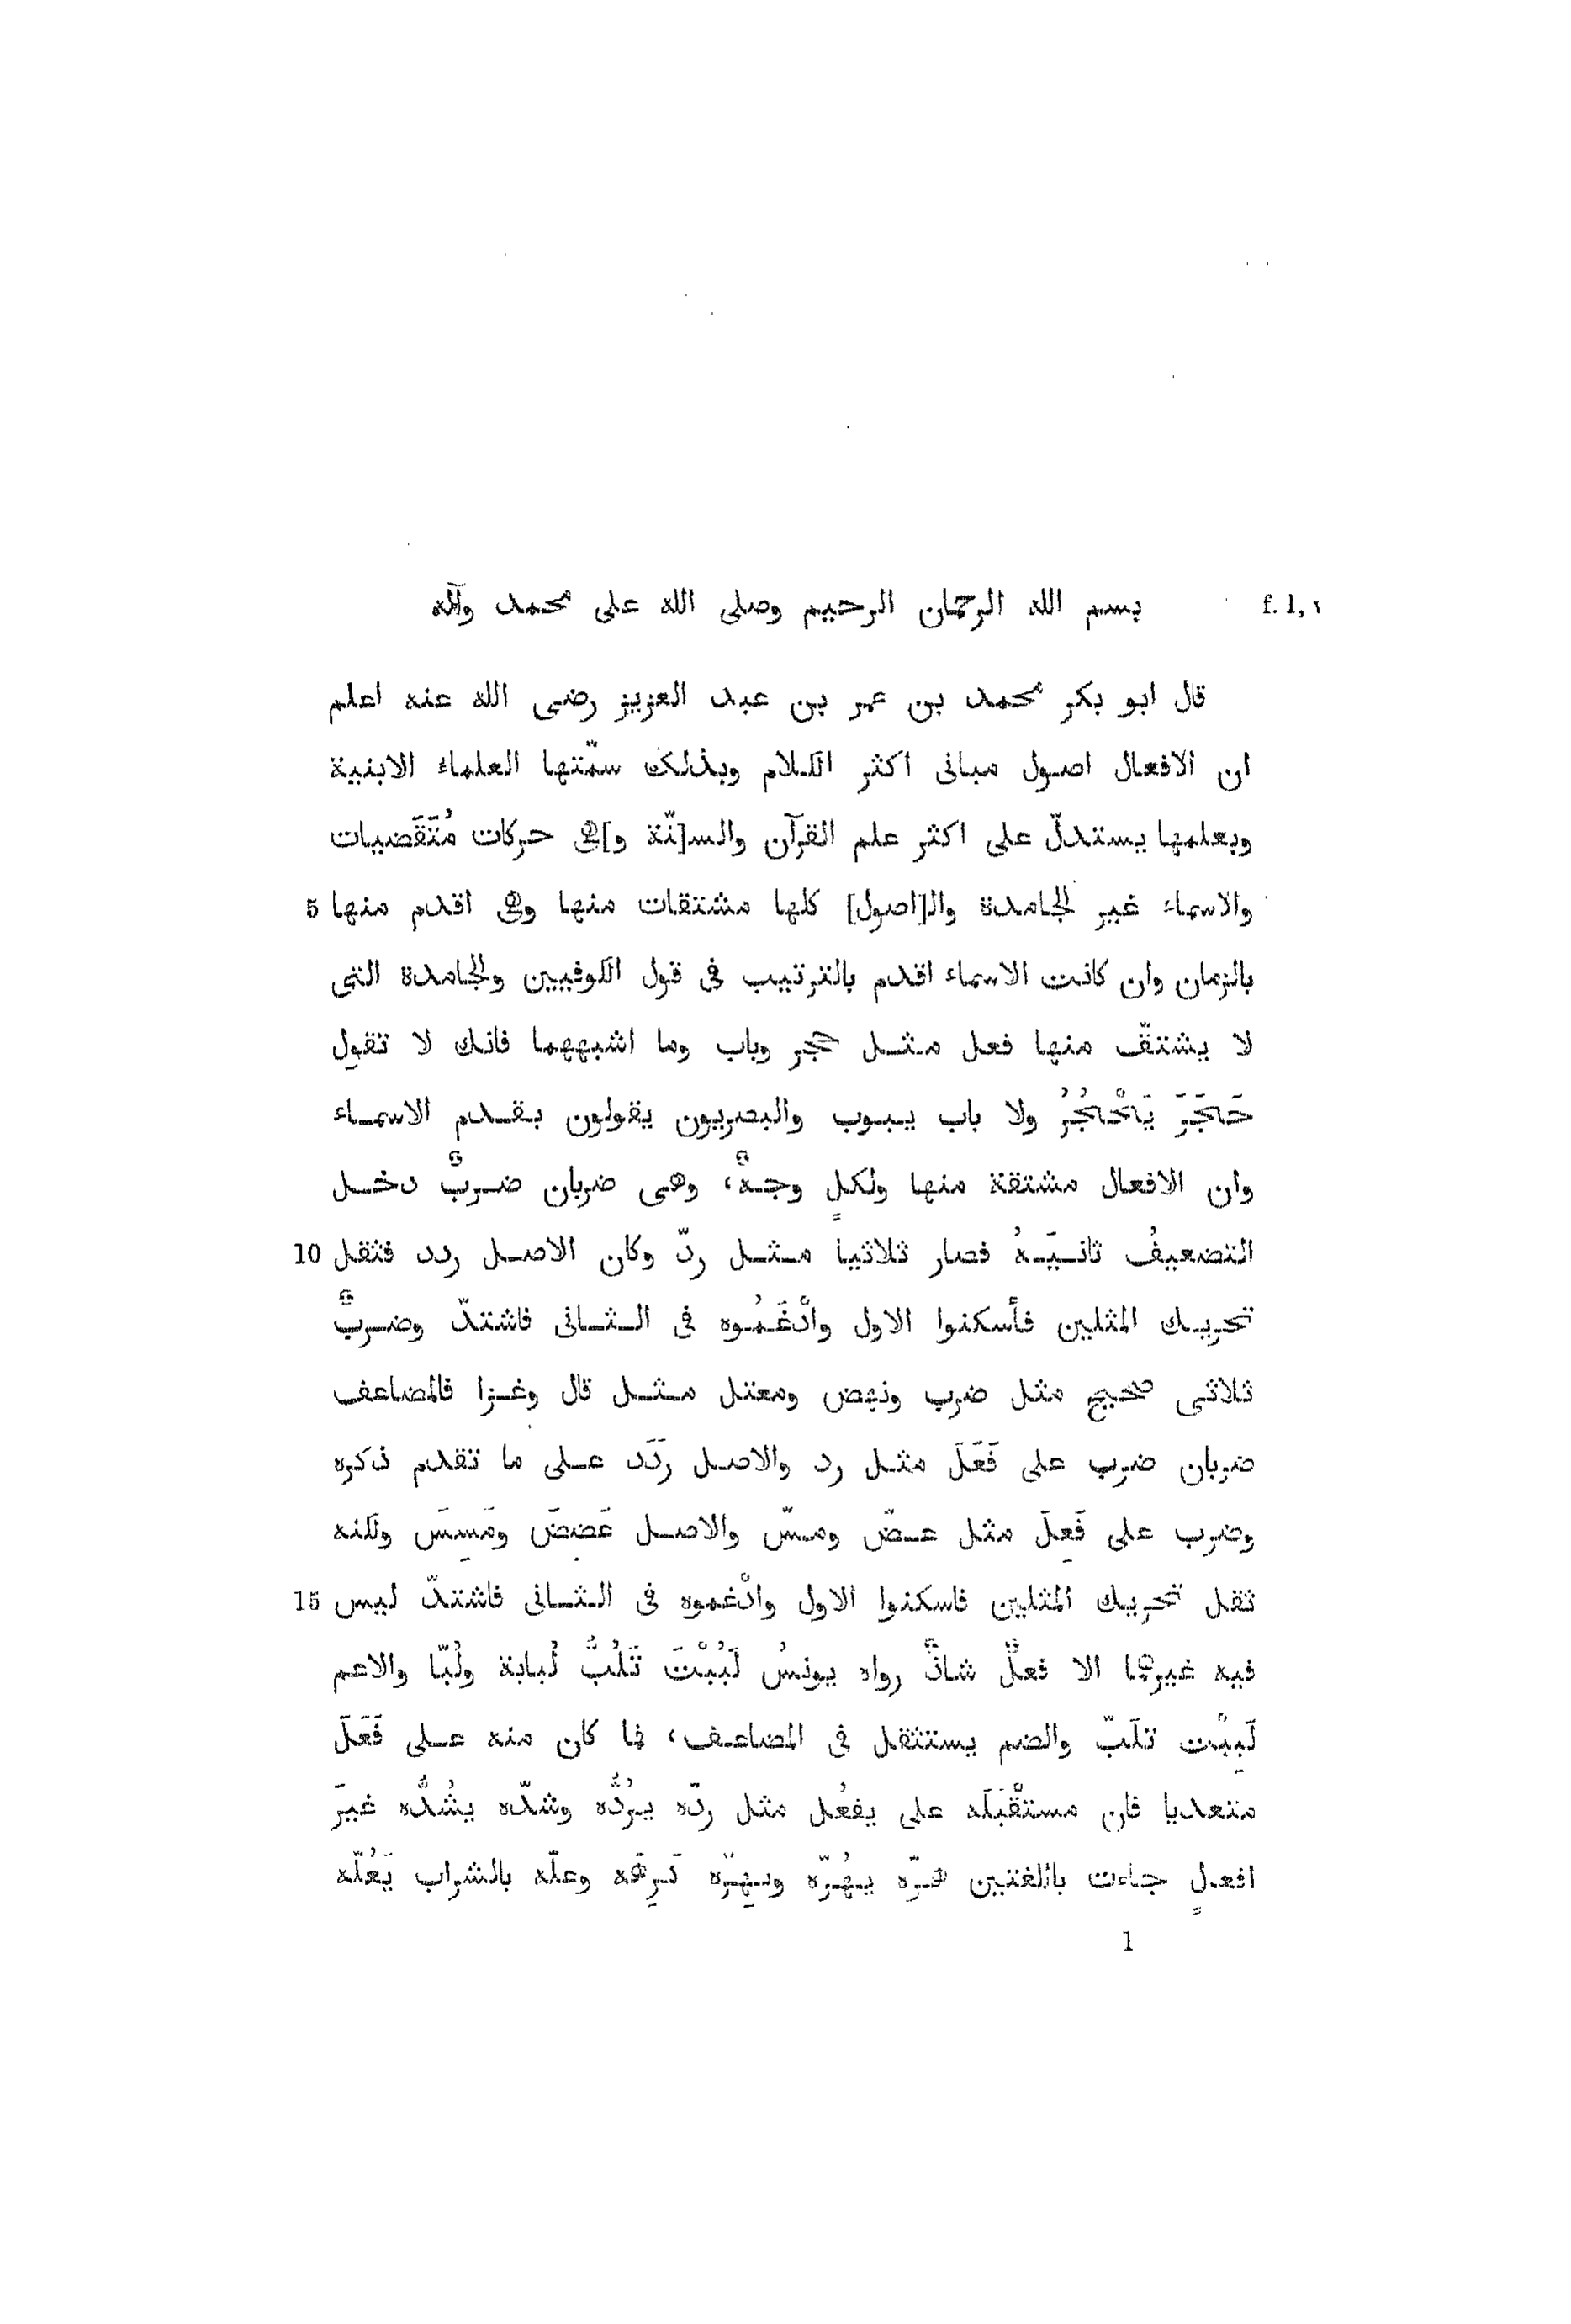 بسم الله الرحمان الرحيم وصلى الله على محمد وآله f. 1, r
قال ابو بكر محمد بن عمر بن عبد العزيز رضى الله عنه اعلم
ان الافعال اصول مبانى اكثر الكلام وبذلك سمّتها العلماء الابنية
وبعلمها يستدلّ على اكثر علم القرآن والس[نّة و]هى حركات مُتَقَضيات
والاسماء غير الجامدة وال[اصول] كلها مشتقات منها وهى اقدم منها 5
بالزمان وان كانت الاسماء اقدم بالترتيب فى قول الكوفيين والجامدة التى
لا يشتقّ منها فعل مثل حجر وباب وما اشبههما فانك لا تقول
حَجَرَ يَحْجُرُ ولا باب يبوب والبصريون يقولون بقدم الاسماء
وان الافعال مشتقة منها ولكلٍ وجهٌ، وهى ضربان ضربٌ دخل
التضعيفُ ثانيَهُ فصار ثلاثيا مثل ردّ وكان الاصل ردد فثقل 10
تحريك المثلين فأسكنوا الاول وادْغَمُوه فى الثانى فاشتدّ وضربٌ
ثلاثى صحيح مثل ضرب ونهض ومعتل مثل قال وغزا فالمضاعف
ضربان ضرب على فَعَلَ مثل رد والاصل رَدَد على ما تقدم ذكره
وضرب على فَعِلَ مثل عضّ ومسّ والاصل عَضِضَ ومَسِسَ ولكنه
ثقل تحريك المثلين فاسكنوا الاول وادْغموه فى الثانى فاشتدّ ليس 15
فيه غيرهما الا فعلٌ شاذٌّ رواه يونسُ لَبُبْتَ تَلُبُّ لُبابة ولُبّا والاعم
لَبِبْت تلَبّ والضم يستثقل فى المضاعف، فما كان منه على فَعَلَ
متعديا فان مستقْبَلَه على يفعُل مثل ردّه يرُدُّه وشدّه يشُدُّه غيرَ
افعالٍ جاءت باللغتين هرّه يهُرّه ويهِرّه كَرِهَه وعلّه بالشراب يَعُلّه
1